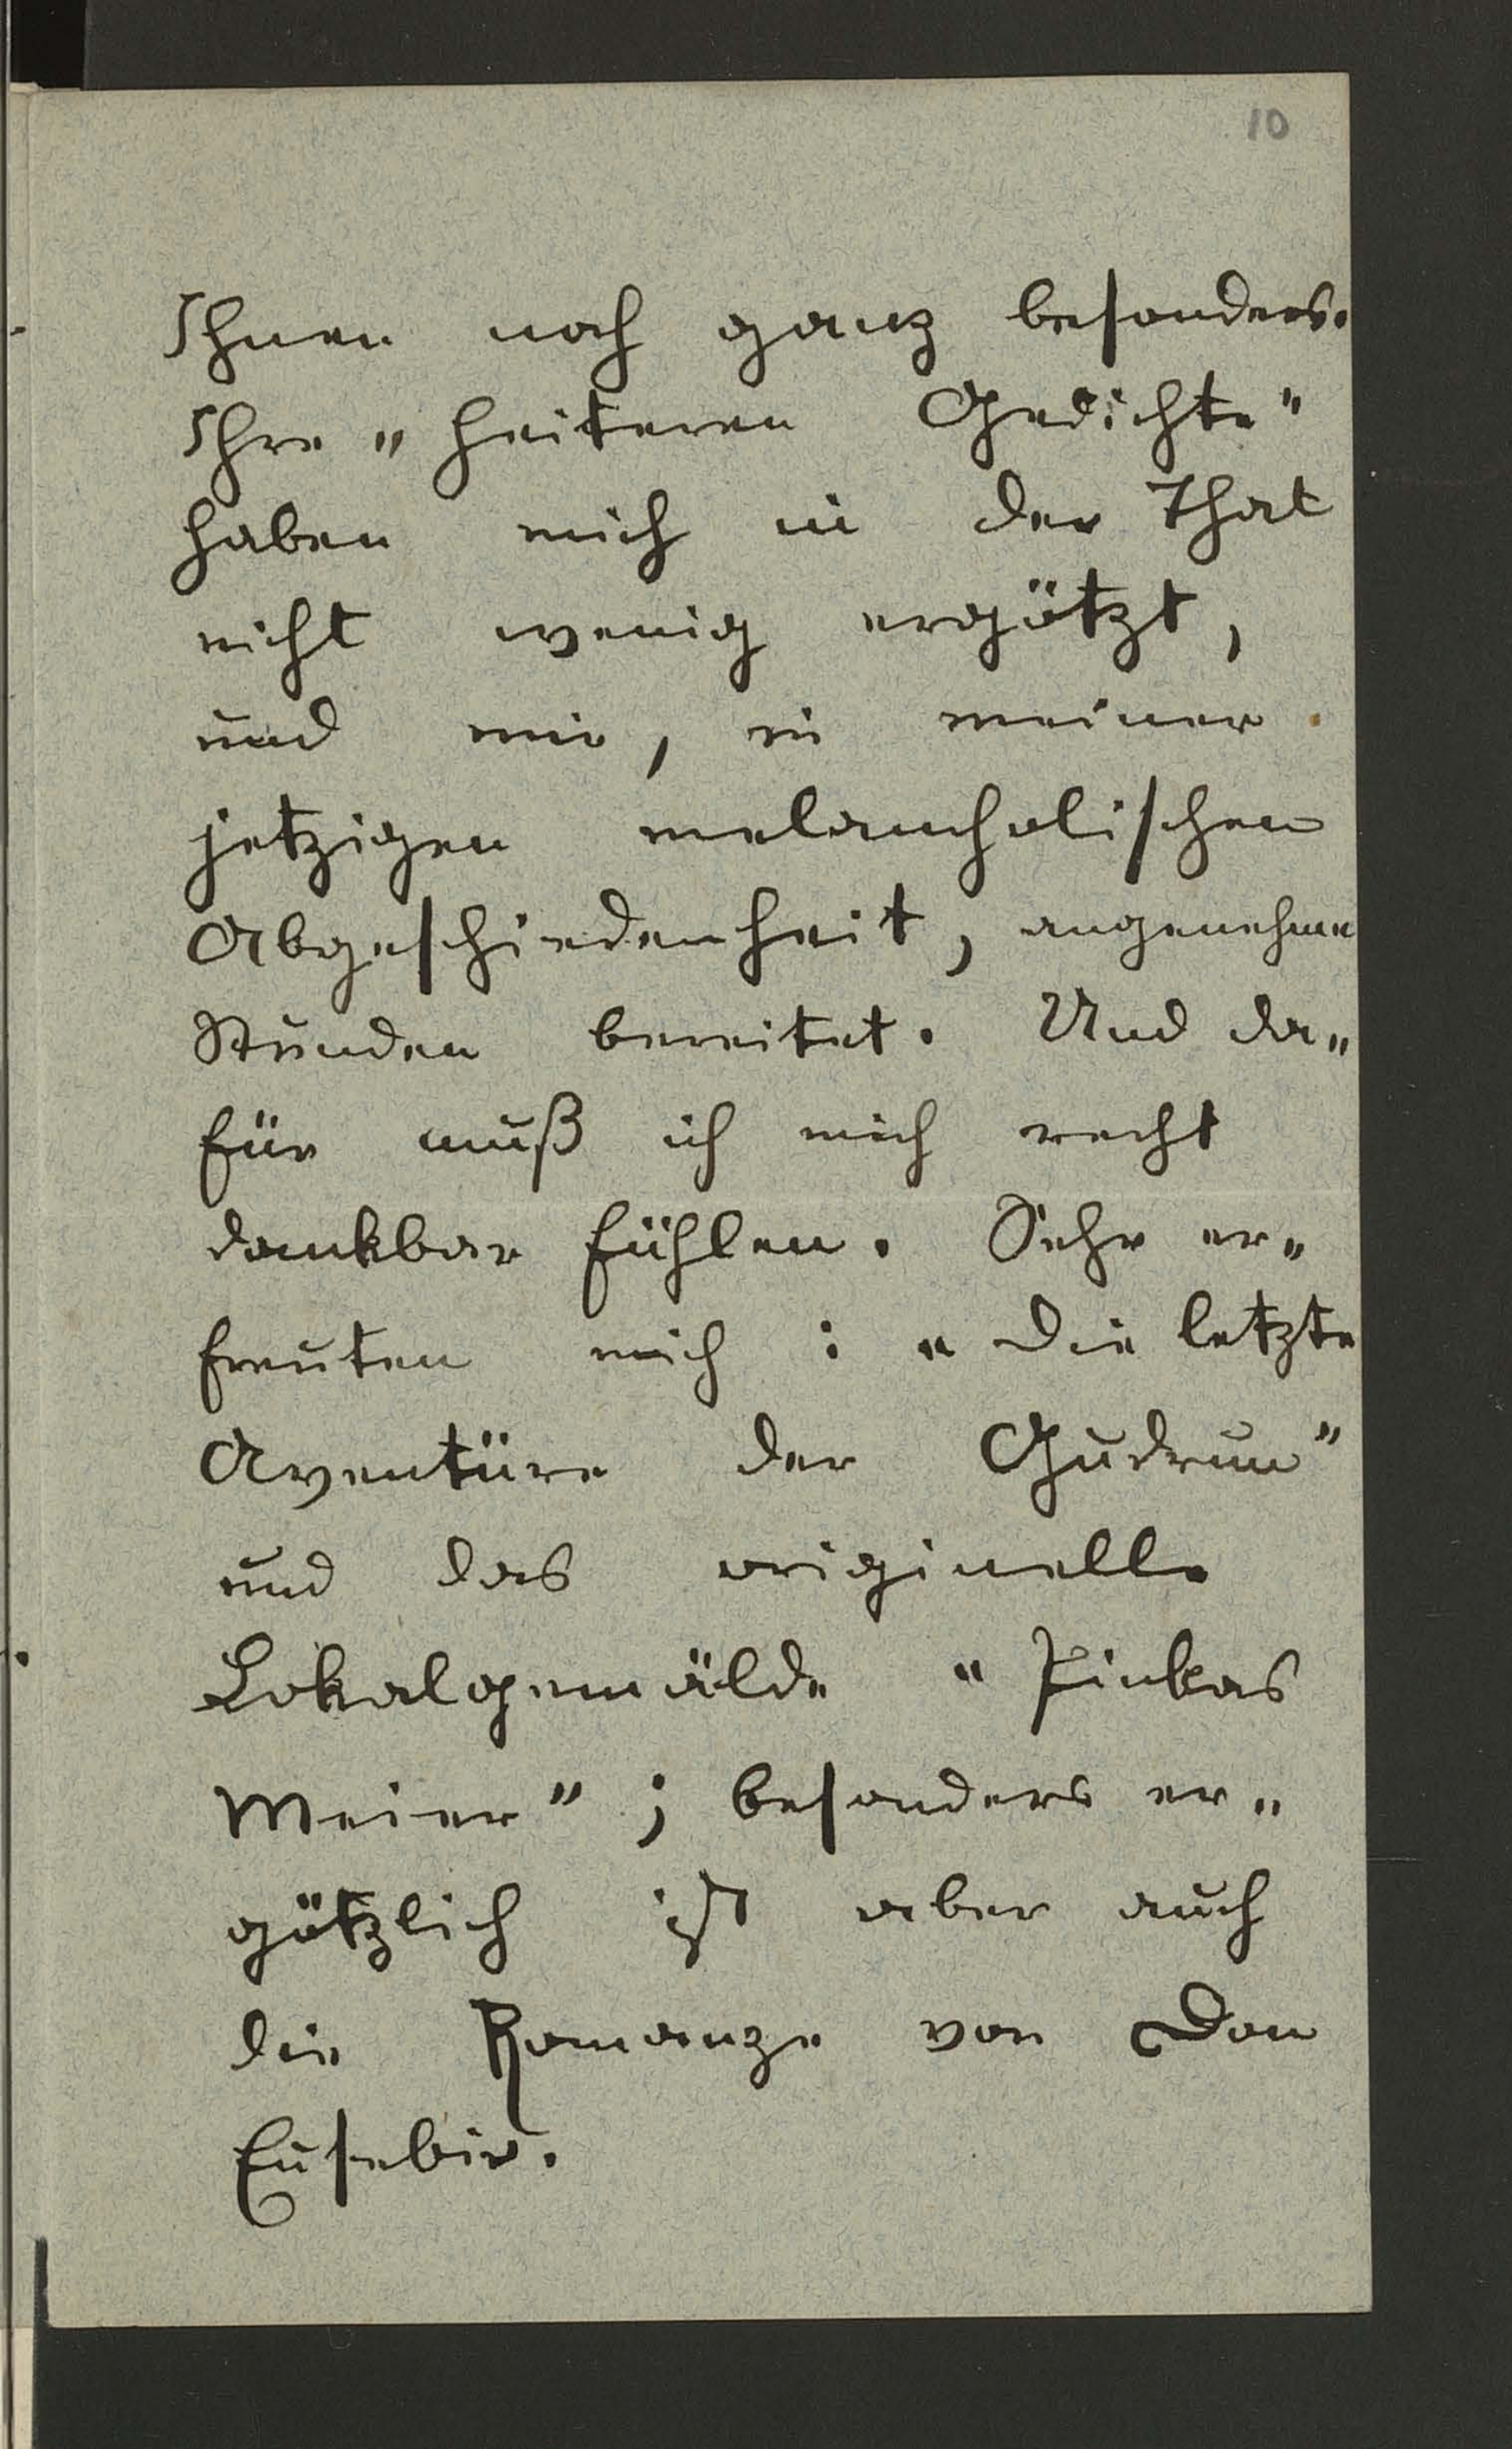 10
Ihnen noch ganz besonders.
Ihre „heiteren Gedichte"
haben mich in der That
nicht wenig ergötzt,
und mir, in meiner
jetzigen melancholischen
Abgeschiedenheit, angenehme
Stunden bereitet. Und da„
für muß ich mich recht
dankbar fühlen. Sehr er„
freuten mich : „Die letzte
Aventüre der Gudrun"
und das originelle
Lokalgemälde „Pinkas
Meier" ; besonders er„
götzlich ist aber auch
die Romanze von Don
Eusebio.